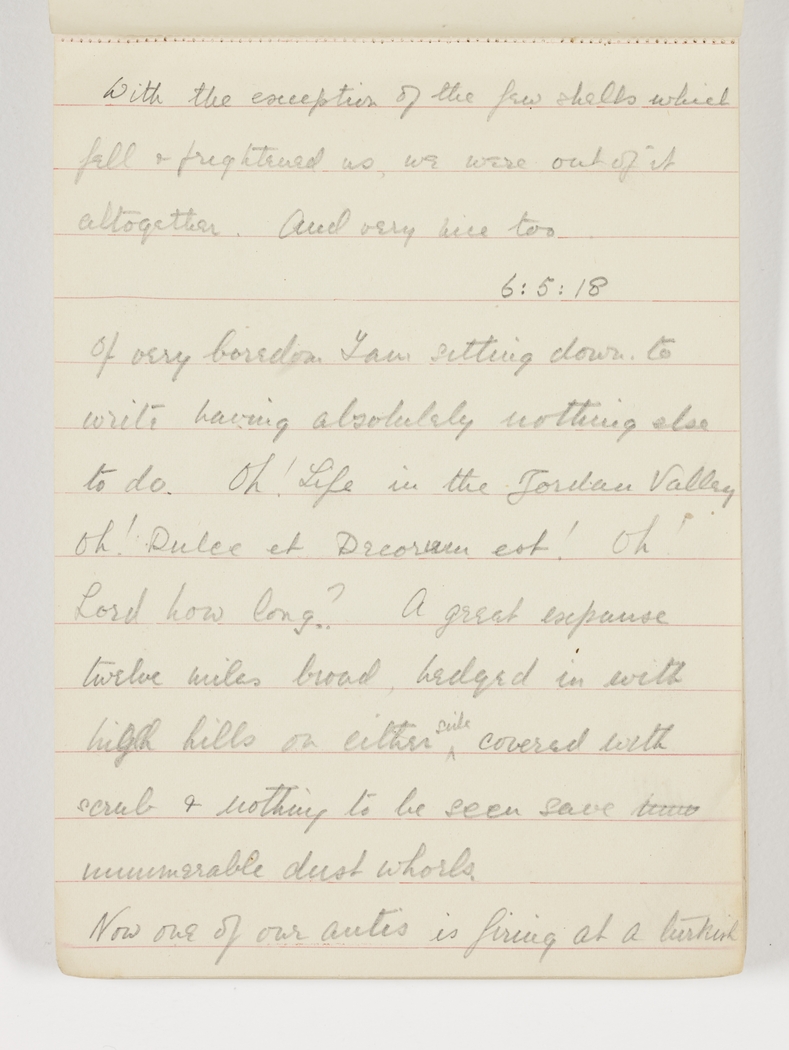 With the exception of the few shells which
fell & frightened us, we were out of it
altogether. And very nice too
6:5:18
Of very boredom I am sitting down to
write having absolutely nothing else
to do. Oh! Life in the Jordan Valley
Oh! Dulce et Decorum est! Oh!
Lord how long? A great expanse
twelve miles broad, hedged in with
high hills on either side covered with
scrub & nothing to be seen save
innumerable dust whorls.
Now one of our antis is firing at a turkish